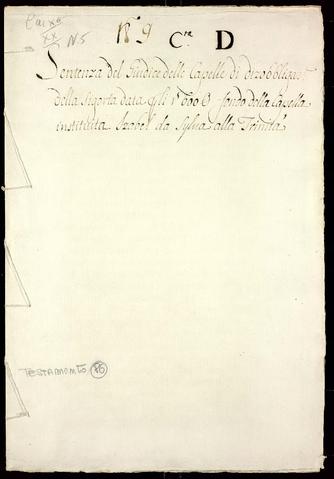 Caixa
XX
N. 5
18 9 C.ra D
Sentenza del Giudice delle Capelle di disobbligar.
della Sigortà data gli 1" 000 fondo della Capella
instituita Izabel da Sylva alla Trinità
TESTAMENTO 86